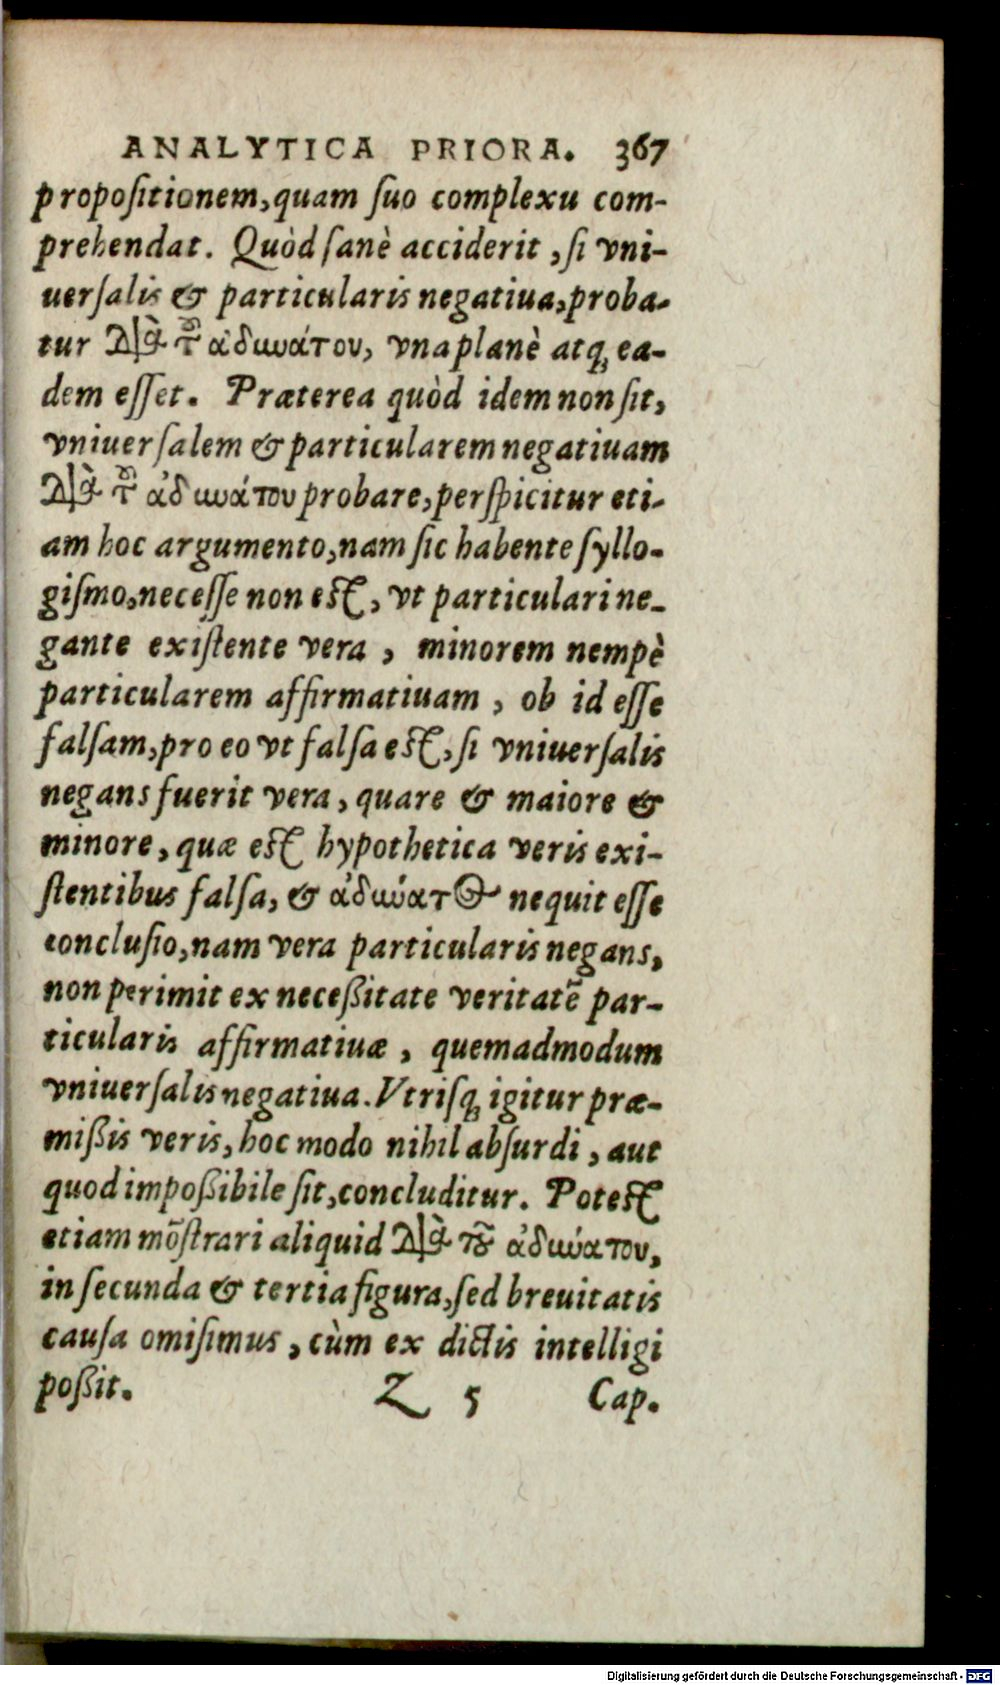 ANALYTICA PRIORA. 367
propositionem, quam ſuo complexu com-
prehendat. Quòd ſanè acciderit, ſi vni-
uerſalis & particularis negatiua, proba-
tur διὰ τοῦ ἀδυνάτου, vna planè atq; ea-
dem eſſet. Præterea quòd idem non ſit,
vniuerſalem & particularem negatiuam
διὰ τοῦ ἀδυνάτου probare, perſpicitur eti-
am hoc argumento, nam ſic habente ſyllo-
giſmo, neceſſe non eſt, vt particulari ne-
gante exiſtente vera, minorem nempè
particularem affirmatiuam, ob id eſſe
falſam, pro eo vt falſa eſt, ſi vniuerſalis
negans fuerit vera, quare & maiore &
minore, quæ eſt hypothetica veris exi-
ſtentibus falſa, & ἀδύνατος nequit eſſe
concluſio, nam vera particularis negans,
non perimit ex neceßitate veritatē par-
ticularis affirmatiuæ, quemadmodum
vniuerſalis negatiua. Vtriſq; igitur præ-
mißis veris, hoc modo nihil abſurdi, aut
quod impoßibile ſit, concluditur. Poteſt
etiam mōſtrari aliquid διὰ τοῦ ἀδυνάτου,
in ſecunda & tertia figura, ſed breuitatis
cauſa omiſimus, cùm ex dictis intelligi
poßit. Z 5 Cap.
Digitalisierung gefördert durch die Deutsche Forschungsgemeinschaft - DFG